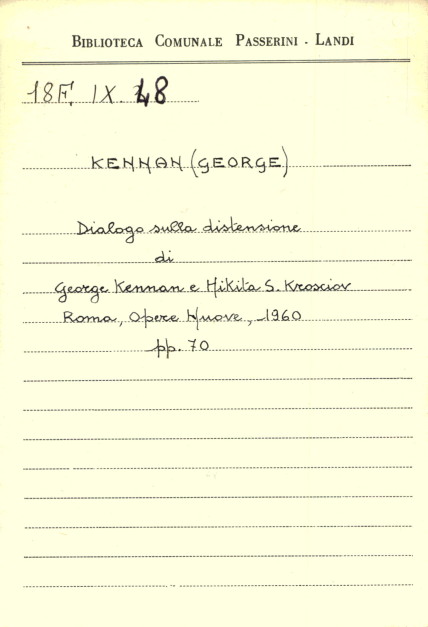 BIBLIOTECA COMUNALE PASSERINI - LANDI
18F. IX. 48
KENNAN (GEORGE)
Dialogo sulla distensione
di
George Kennan e Nikita S. Krusciov
Roma, Opere Nuove, 1960
pp. 70